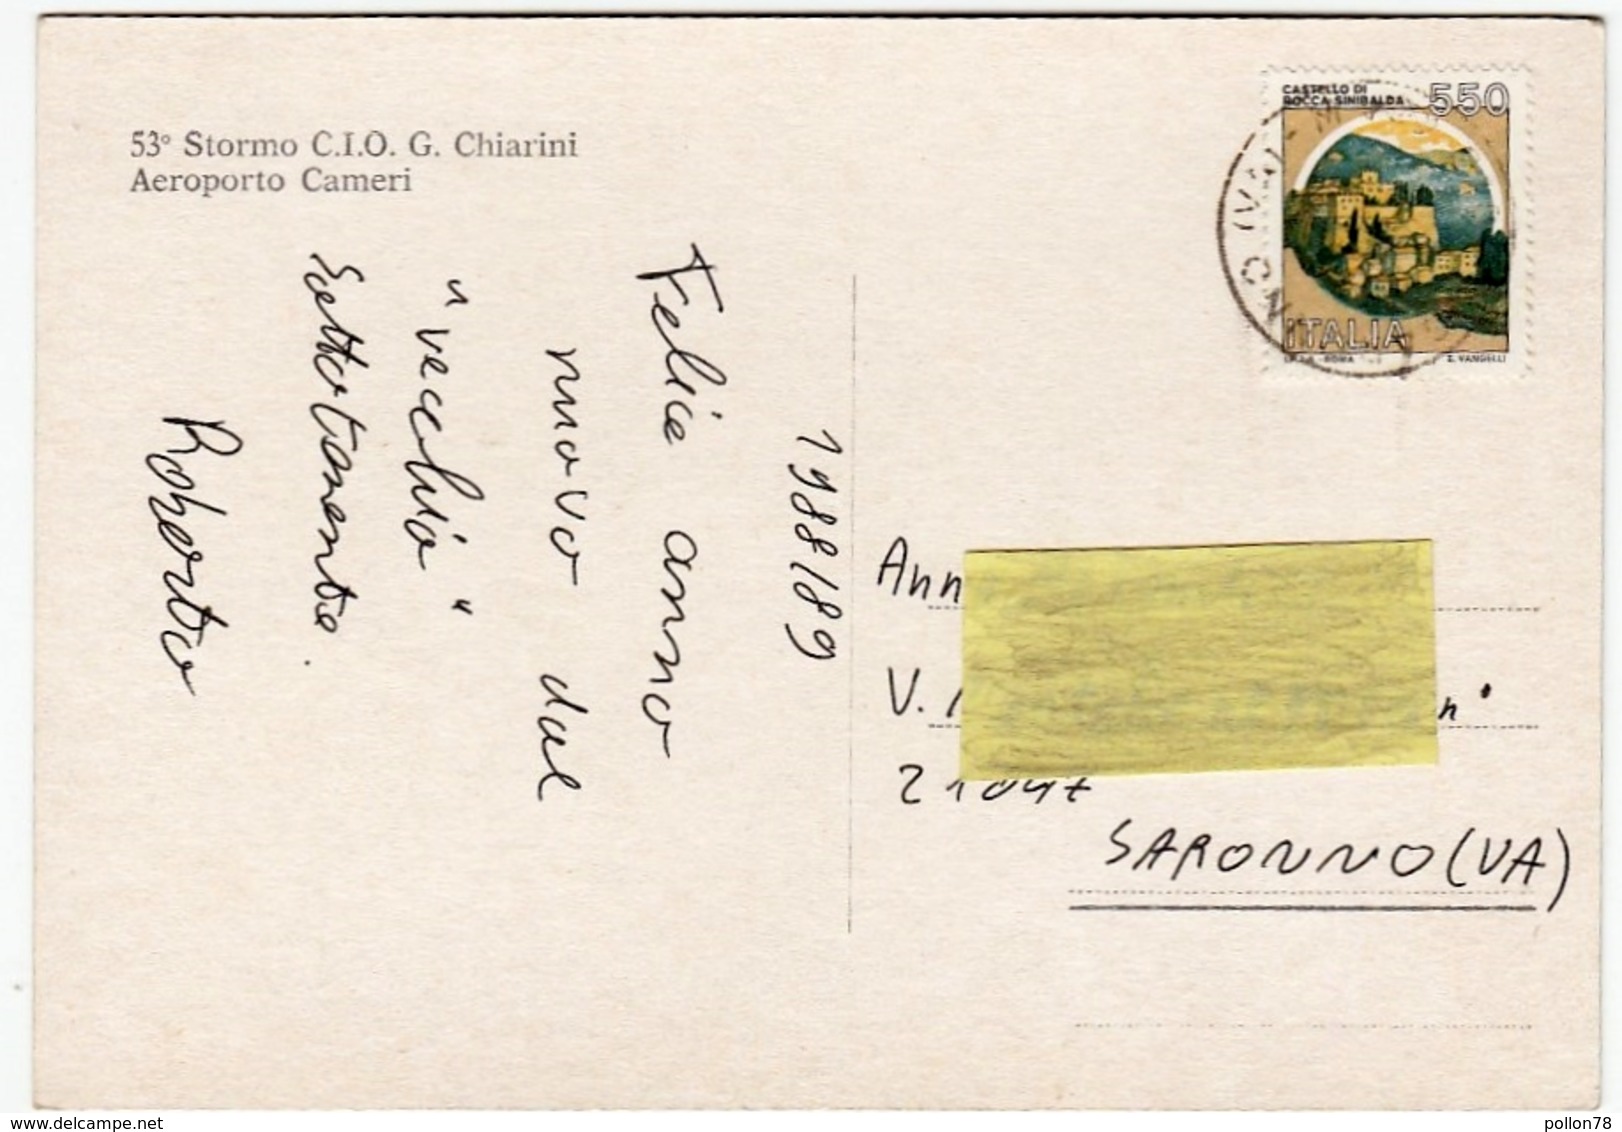 53° Stormo C.I.O. G. Chiarini
Aeroporto Cameri
1988/89
Felice anno
nuovo dal
"vecchio"
Sottotenente.
Roberto
CASTELLO DI
ROCCA SINIBALDA
550
ITALIA
I.P.Z.S. - ROMA
E. VANGELLI
Ann
V.
n°
21047
SARONNO (VA)
www.delcampe.net
pollon78